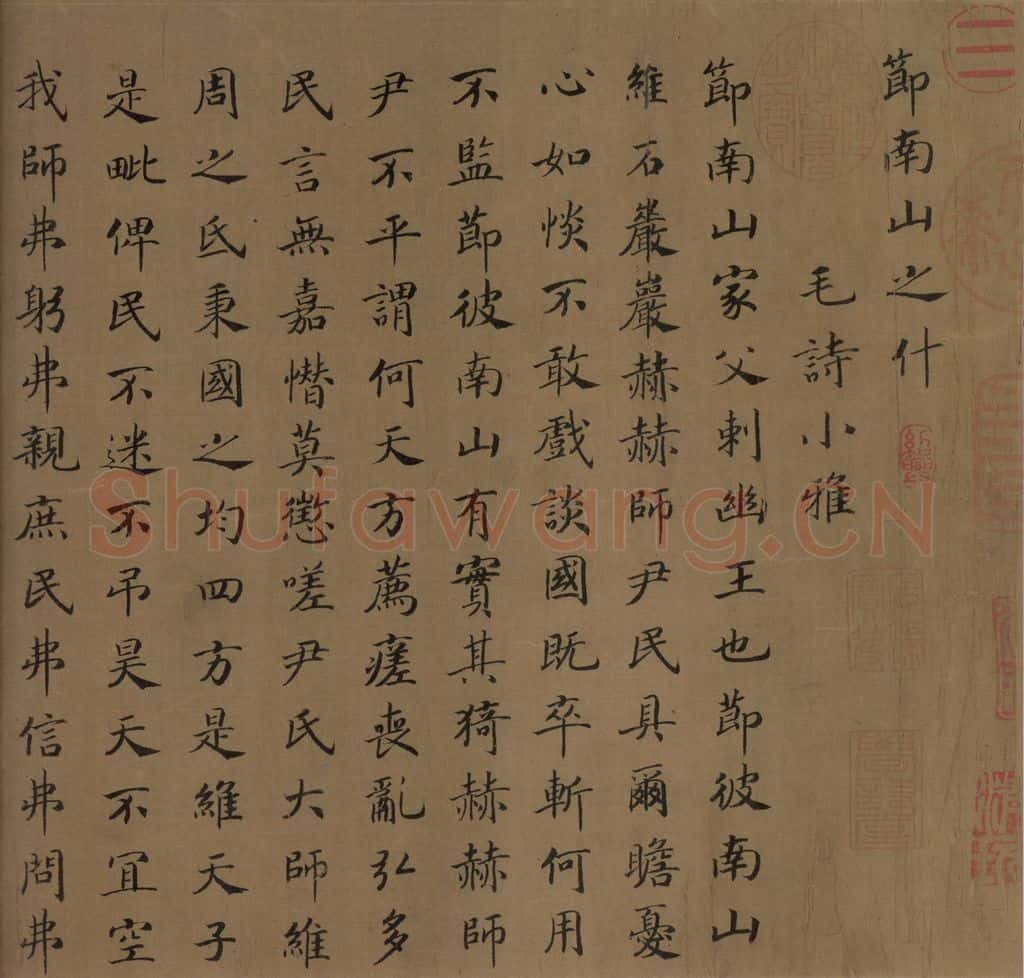 節南山之什
毛詩小雅
節南山家父刺幽王也節彼南山
維石巖巖赫赫師尹民具爾瞻憂
心如惔不敢戲談國既卒斬何用
不監節彼南山有實其猗赫赫師
尹不平謂何天方薦瘥喪亂弘多
民言無嘉憯莫懲嗟尹氏大師維
周之氐秉國之均四方是維天子
是毗俾民不迷不吊昊天不宜空
我師弗躬弗親庶民弗信弗問弗
Shufawang.CN